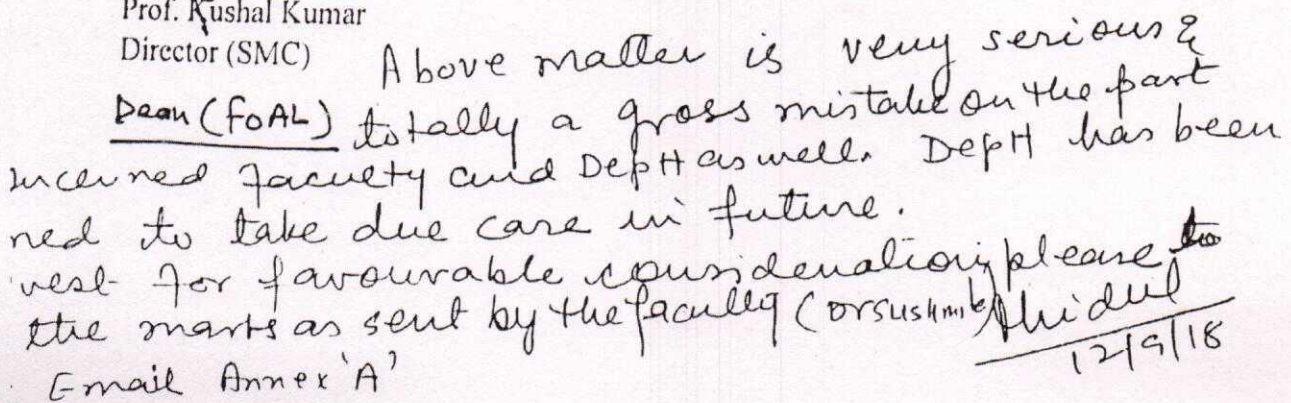 Prof. Kushal Kumar
Director (SMC)
Above matter is very serious &
Dean (FOAL) totally a gross mistake on the part
ncerned faculty and Deptt as well. Deptt has been
ned to take due care in future.
uest for favourable consideration, please to
the marks as sent by the faculty (Dr Sushmi
Email Annex 'A'
12/9/18